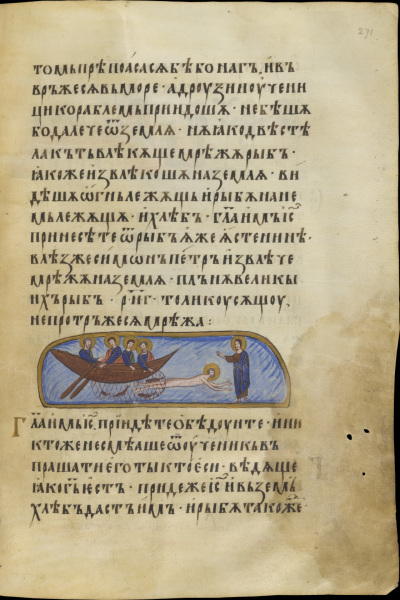 271
томь прѣпоасасѧ бѣ бо нагъ. и въ
връже сѧ въ море · а дроузии оучени
ци кораблемь приидошѧ · не бѣшѧ
бо далече ѿ землѧ · нѫ ꙗко двѣстѣ
лакътъ влѣкѫще мрѣжѫ рыбъ ·
ꙗкоже извлѣкошѧ на землѧ · ви
дѣшѧ ѡгнь лежѧщь и рыбѫ на не
мь лежѧщѫ · и хлѣбъ · гл҃а имь іс҃
принесѣте ѿ рыбъ ѧже ѧсте нн҃ѣ ·
влѣзъ же симѡнъ петръ извлѣче
мрѣжѫ на землѧ · плънѫ великы
ихъ рыбъ · рн҃г · толикоу сѫщоу
не протръже сѧ мрѣжа :
Гл҃а имь іс҃ придѣте обѣдоуите · и ни
ктоже не смѣаше ѿ оученикъ въ
прашати его ты кто еси · вѣдѧще
ꙗко г҃ь естъ · приде же іс҃ и въземь
хлѣбъ дастъ имъ · и рыбѫ такоже